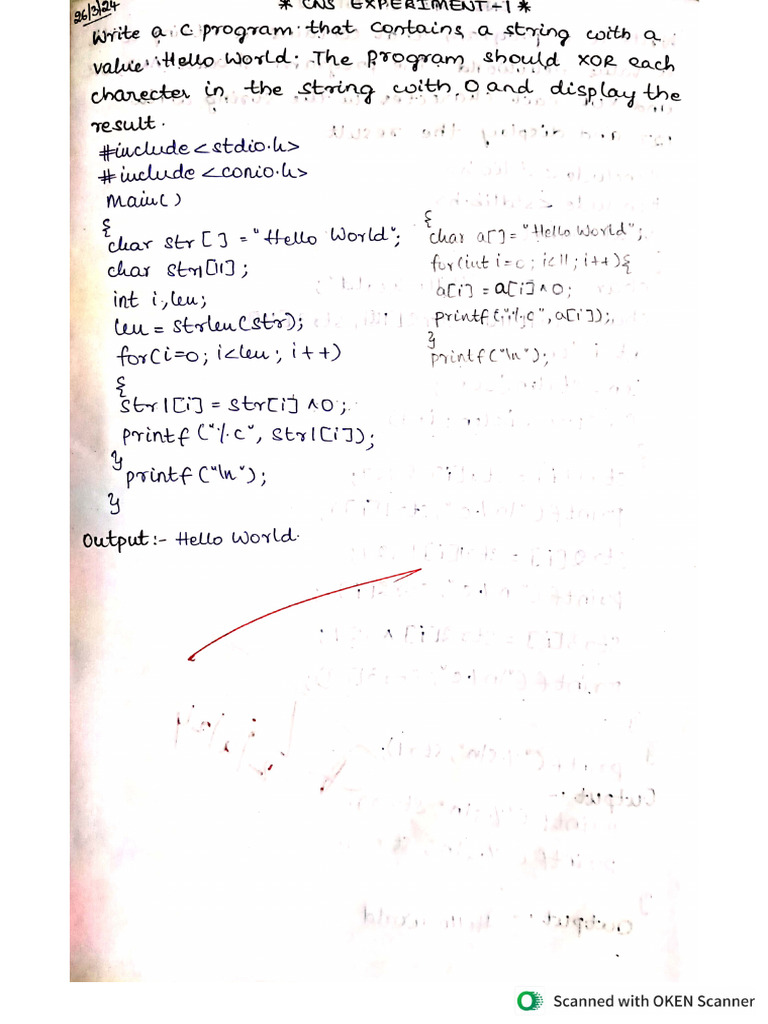 26/3/24
* CNS EXPERIMENT-1 *
Write a C program that contains a string with a
value 'Hello World'. The Program should XOR each
charecter in the string with 0 and display the
result.
#include<stdio.h>
#include <conio.h>
Main()
{
char str[ ] = "Hello World";
char str1[11];
int i,len;
len = strlen(str);
for(i=0; i<len; i++)
{
str1[i] = str[i] ^0;
printf ("%c", str1[i]);
}
printf ("\n");
}
{
char a[ ] = "Hello World";
for(int i=0; i<11; i++){
a[i] = a[i]^0;
printf("%c", a[i]);
}
printf("\n");
Output:- Hello World.
Scanned with OKEN Scanner